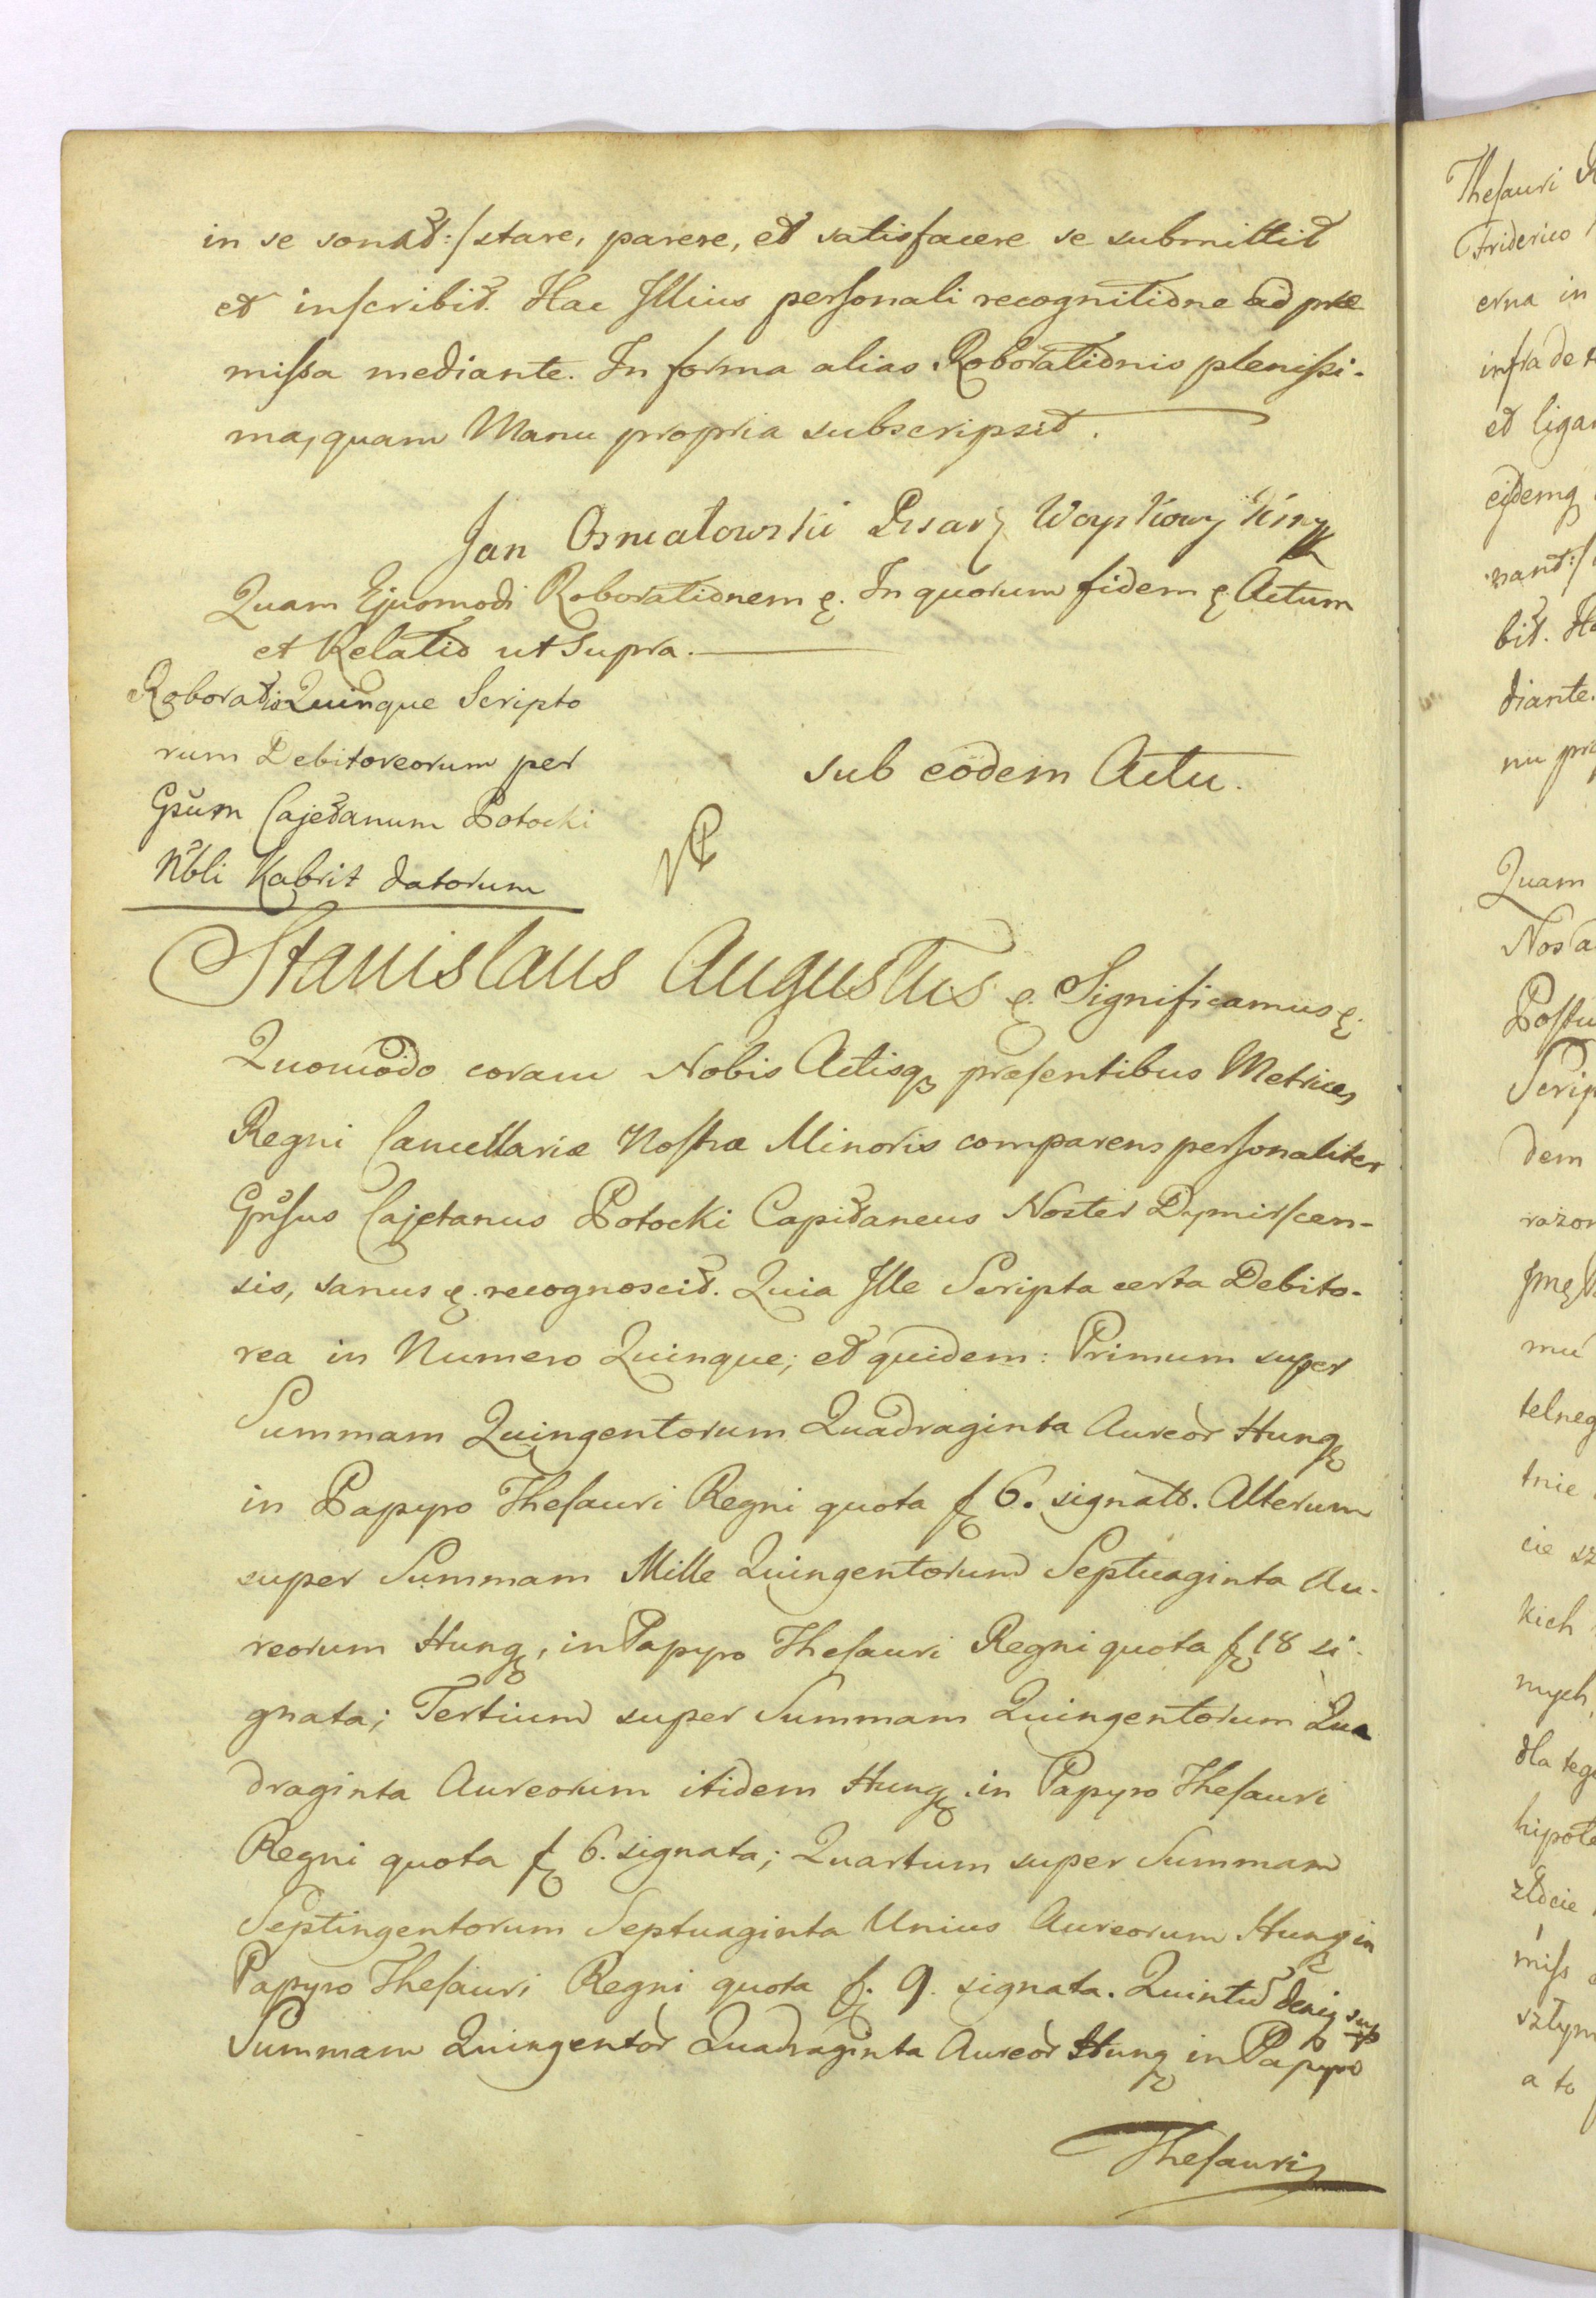 in se sonat:/ stare, parere, et satisfacere se submittit
et inscribit. Hac Illius personali recognitione ad præ
missa mediante. In forma alias Roborationis plenissi-
ma, quam Manu propria subscripsit.
Jan Osmałowski Pisarz Woyskowy
Quam Ejusmodi Roborationem &. In quorum fidem &. Actum
et Relatio ut Supra.
Roboratio Quinque Scripto
rum Debitoreorum per
Gsum Cajetanum Potocki
Nbli Kabrit datorum
sub eodem Actu.
Stanislaus Augustus &. Significamus &.
Quomodo coram Nobis Actisq præsentibus Metrices
Regni Cancellariæ Nostræ Minoris comparens personaliter
Gnsus Cajetanus Potocki Capitaneus Noster Dymirscen-
sis, sanus &. recognoscit. Quia Ille Scripta certa Debito-
rea in Numero Quinque; et quidem: Primum super
Summam Quingentorum Quadraginta Aureor Hung
in Papyro Thesauri Regni quota f 6. signatt. Alterum
super Summam Mille Quingentorum Septuaginta Au-
reorum Hung, in Papyro Thesauri Regni quota f 18 si-
gnata; Tertium super Summam Quingentorum Qua
draginta Aureorum itidem Hung. in Papyro Thesauri
Regni quota f 6. signata; Quartum super Summam
Septingentorum Septuaginta Unius Aureorum Hung in
Papyro Thesauri Regni quota f. 9. signata. Quintum deniq sup
Summam Quingentor Quadraginta Aureor Hung in Papyro
Thesauri
Thesauri
Friderico
erna in
infra de
et ligan
ejdemq
nant:/
bit. Ha
diante.
nu pro
Quam
Nos a
Postu
Scrip
dem
razon
mu
telneg
tnie
cie sz
kich
mych
dla teg
hipote
złocie
miss
sztym
a to